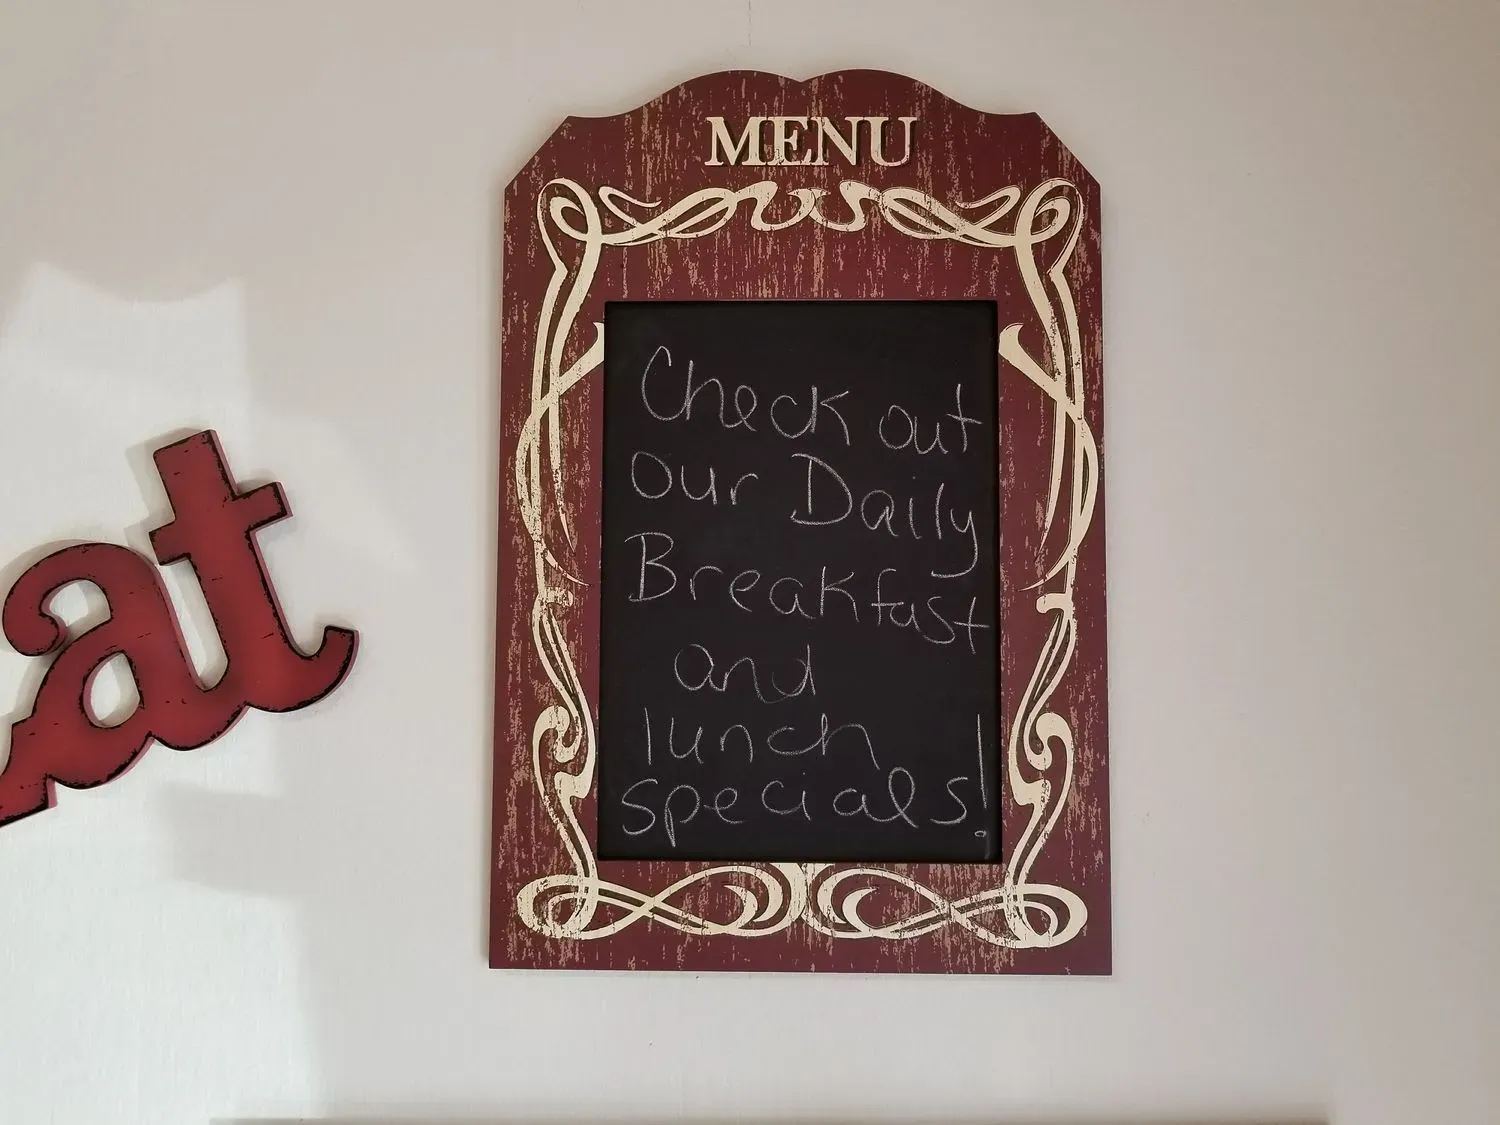 MENU
Check out
our Daily
Breakfast
and
lunch
specials!
at